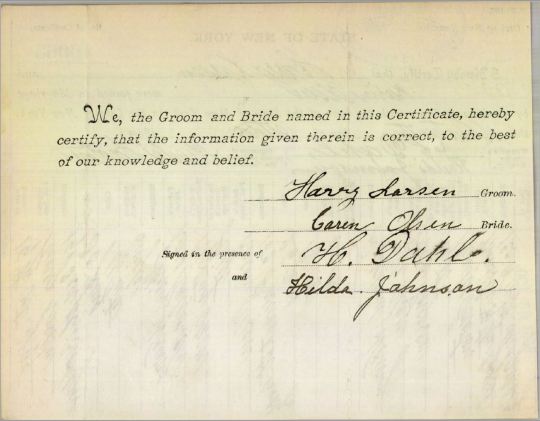 We, the Groom and Bride named in this Certificate, hereby
certify, that the information given therein is correct, to the best
of our knowledge and belief.
Harry Larsen Groom.
Caren Olsen Bride.
Signed in the presence of H. Dahl.
and Hilda Johnson